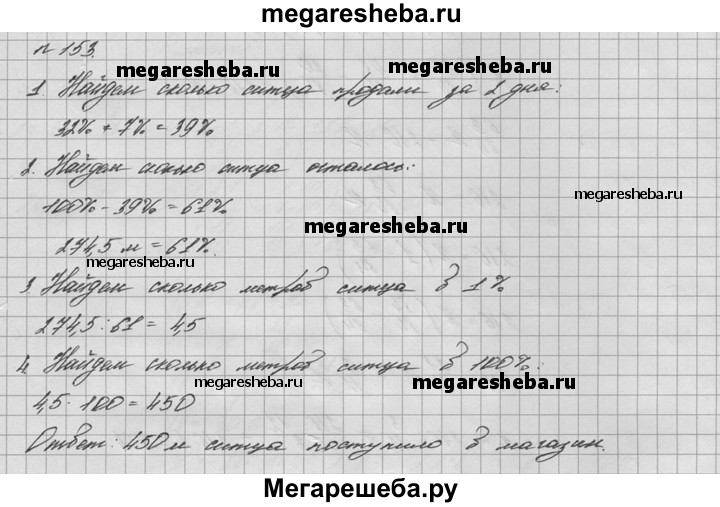 megaresheba.ru
№ 153.
megaresheba.ru
1. Найдем сколько ситца продали за 2 дня:
megaresheba.ru
32% + 7% = 39%
2. Найдем сколько ситца осталось:
megaresheba.ru
100% - 39% = 61%
megaresheba.ru
274,5 м = 61%.
megaresheba.ru
3. Найдем сколько метров ситца в 1%
274,5 : 61 = 4,5
4. Найдем сколько метров ситца в 100%:
megaresheba.ru megaresheba.ru
4,5 · 100 = 450
Ответ: 450 м ситца поступило в магазин.
Мегарешеба.ру